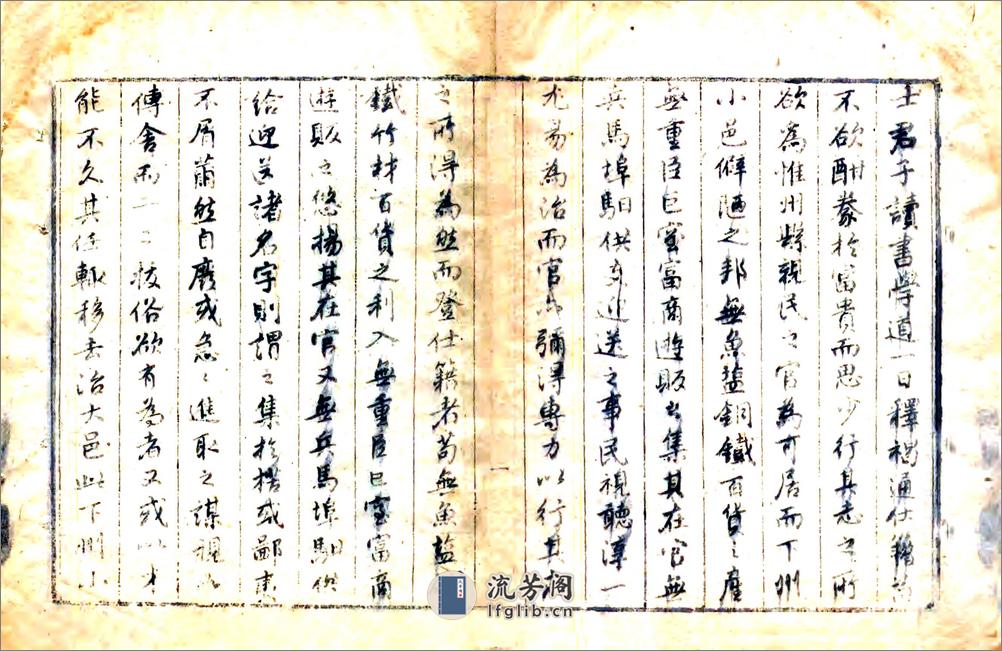 士君子讀書學道一日釋褐通仕籍苟
不欲酣豢於富貴而思少行其志之所
欲為惟州縣親民之官為可居而下州
小邑僻陋之邦無魚鹽銅鐵百貨之產
無重臣巨室富商遊販之集其在官無
兵馬埠馹供支迎送之事民視聽淳一
尤易為治而官亦彌得專力以行其
一
之所得為然而登仕籍者苟無魚鹽
鐵竹材百貨之利入無重臣巨室富商
遊販之悠揚其在官又無兵馬埠馹供
給迎送諸名字則謂之集於枯或鄙夷
不屑薾然自廢或急〻進取之謀視如
傳舍而一二拔俗欲有為者又或以才
能不久其任輒移去治大邑此下州小
流芳閣
lfglib.cn